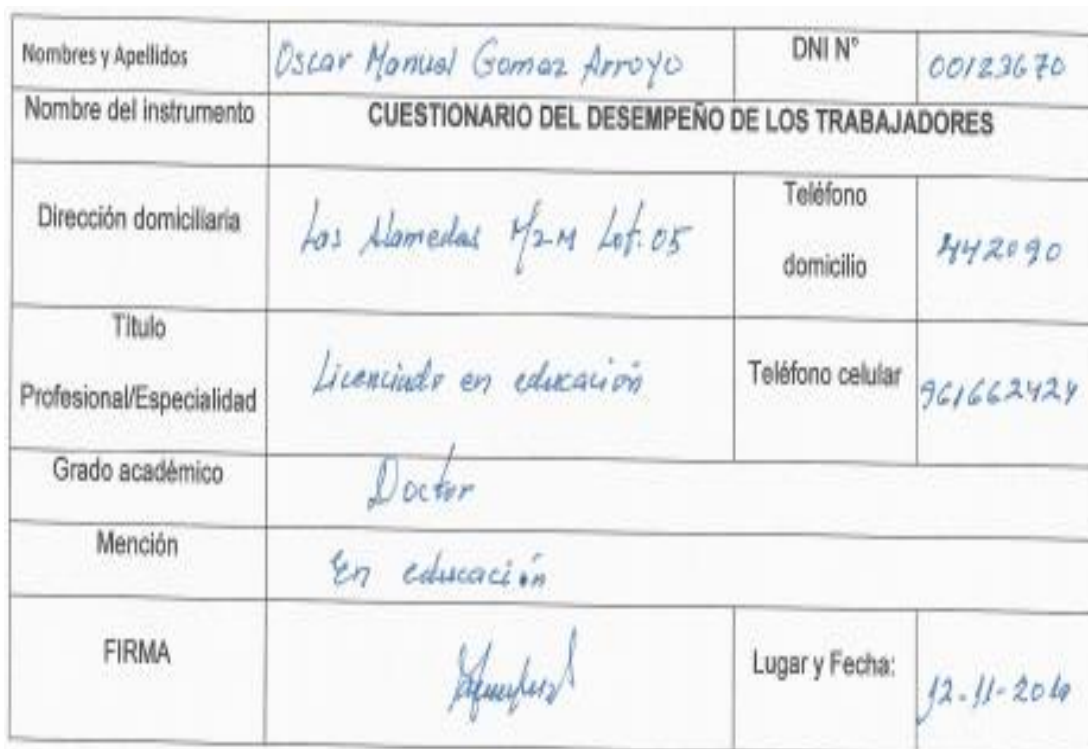 Nombres y Apellidos Oscar Manuel Gomez Arroyo DNI N° 00123670
Nombre del instrumento CUESTIONARIO DEL DESEMPEÑO DE LOS TRABAJADORES
Dirección domiciliaria Las Alamedas Mz-M Lot. 05 Teléfono domicilio 442090
Título Profesional/Especialidad Licenciado en educación Teléfono celular 961662424
Grado académico Doctor
Mención En educación
FIRMA Lugar y Fecha: 12-11-